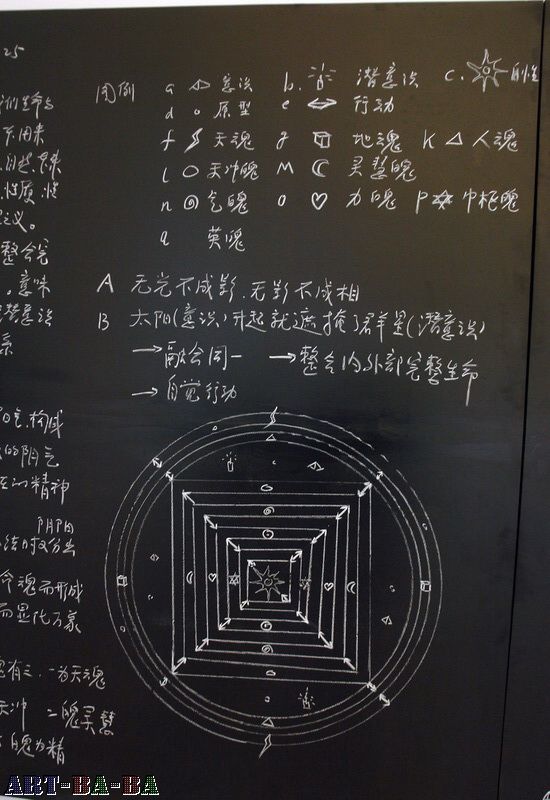 25
图例 a 意识 b. 潜意识 c. 自性
d 原型 e 行动
f 天魂 g 地魂 K 人魂
l 天冲魄 M 灵慧魄
n 气魄 o 力魄 P 中枢魄
q 英魄
A 无光不成影.无影不成相
B 太阳(意识)升起就遮掩了群星(潜意识)
→融合同一 →整合内外部完整生命
→自觉行动
不用来
性质.性
义。
整合完
.意味
潜意识
系
气.构成
的阴气
精神
阴阳
命魂而形成
而显化万象
有三.一为天魂
天冲 二魄灵慧
魄为精
ART-BA-BA